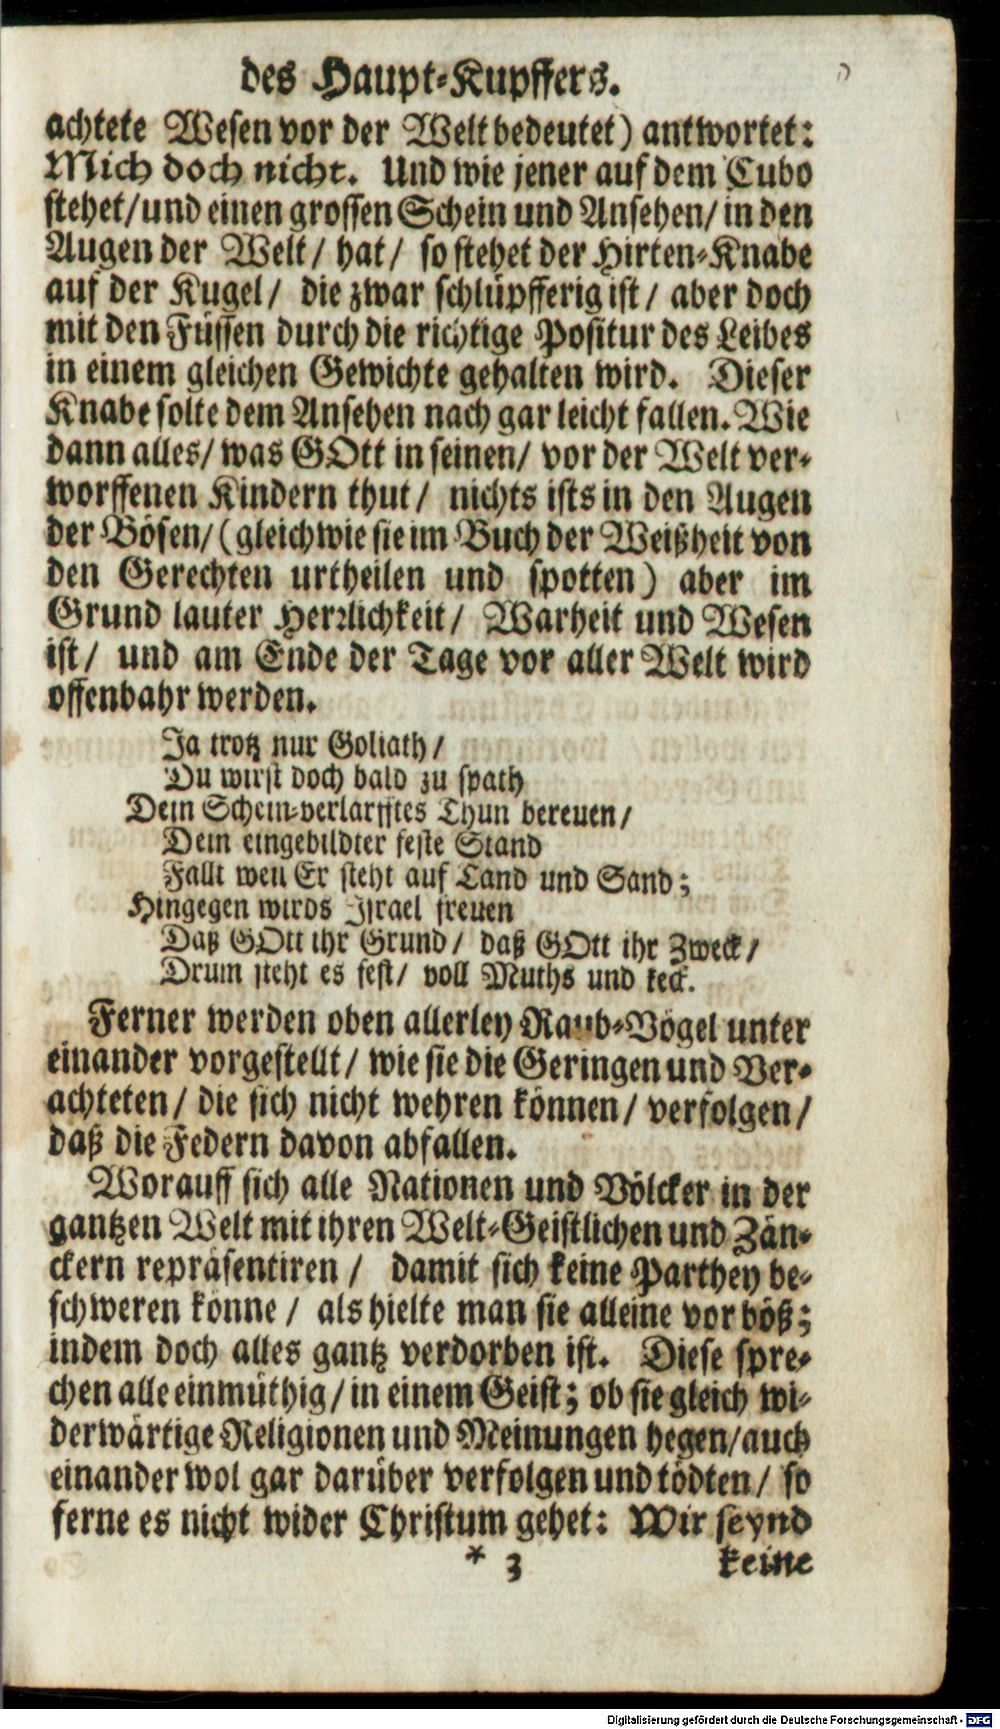 des Haupt-Kupffers.
achtete Wesen vor der Welt bedeutet) antwortet:
Mich doch nicht. Und wie jener auf dem Cubo
stehet/ und einen grossen Schein und Ansehen/ in den
Augen der Welt/ hat/ so stehet der Hirten-Knabe
auf der Kugel/ die zwar schlüpfferig ist/ aber doch
mit den Füssen durch die richtige Positur des Leibes
in einem gleichen Gewichte gehalten wird. Dieser
Knabe solte dem Ansehen nach gar leicht fallen. Wie
dann alles/ was GOtt in seinen/ vor der Welt ver-
worffenen Kindern thut/ nichts ists in den Augen
der Bösen/ (gleichwie sie im Buch der Weißheit von
den Gerechten urtheilen und spotten) aber im
Grund lauter Herrlichkeit/ Warheit und Wesen
ist/ und am Ende der Tage vor aller Welt wird
offenbahr werden.
Ja trotz nur Goliath/
Du wirst doch bald zu spath
Dein Schein-verlarfftes Thun bereuen/
Dein eingebildter feste Stand
Fällt weil Er steht auf Tand und Sand;
Hingegen wirds Israel freuen
Daß GOtt ihr Grund/ daß GOtt ihr Zweck/
Drum steht es fest/ voll Muths und keck.
Ferner werden oben allerley Raub-Vögel unter
einander vorgestellt/ wie sie die Geringen und Ver-
achteten/ die sich nicht wehren können/ verfolgen/
daß die Federn davon abfallen.
Worauff sich alle Nationen und Völcker in der
gantzen Welt mit ihren Welt-Geistlichen und Zän-
ckern repräsentiren/ damit sich keine Parthey be-
schweren könne/ als hielte man sie alleine vor böß;
indem doch alles gantz verdorben ist. Diese spre-
chen alle einmüthig/ in einem Geist; ob sie gleich wi-
derwärtige Religionen und Meinungen hegen/ auch
einander wol gar darüber verfolgen und tödten/ so
ferne es nicht wider Christum gehet: Wir seynd
* 3 keine
Digitalisierung gefördert durch die Deutsche Forschungsgemeinschaft - DFG